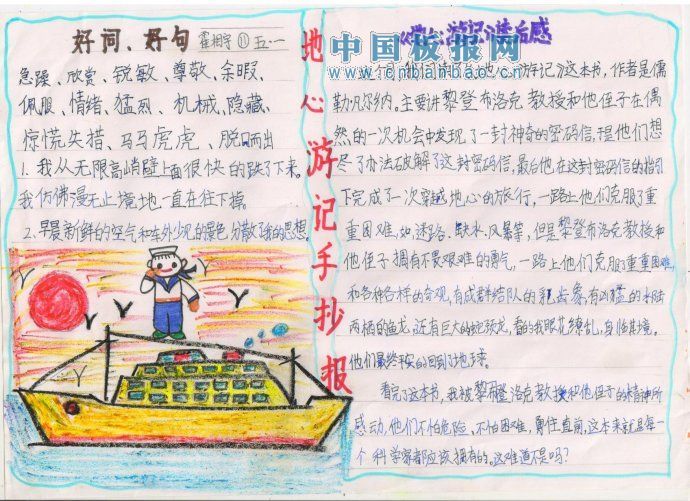 好词、好句 霍相宇 ⑪ 五·一
急躁、欣赏、锐敏、尊敬、余暇、
佩服、情绪、猛烈、机械、隐藏、
惊慌失措、马马虎虎、脱口而出
1.我从无限高峭壁上面很快的跌了下来。
我仿佛漫无止境地一直在往下掉
2.早晨新鲜的空气和车外少见的景色分散了我的思想。
地心游记手抄报
中国板报网
www.cnbanbao.cn
游记》读后感
游记》这本书,作者是儒
勒凡尔纳。主要讲黎登布洛克教授和他侄子在偶
然的一次机会中发现了一封神奇的密码信,于是他们想
尽了办法破解了这封密码信,最后他在这封密码信的指引
下完成了一次穿越地心的旅行,一路上他们克服了重
重困难,如迷路、缺水、风暴等,但是黎登布洛克教授和
他侄子拥有不畏艰难的勇气,一路上他们克服了重重困难,
和各种各样的奇观,有成群结队的乳齿象,有凶猛的水陆
两栖的鱼龙,还有巨大的蛇颈龙,看的我眼花缭乱,身临其境。
他们最终平安的回到了地球。
看完了这本书,我被黎登布洛克教授和他侄子的精神所
感动,他们不怕危险、不怕困难,勇往直前,这本来就是每一
个科学家都应该拥有的。这难道不是吗?